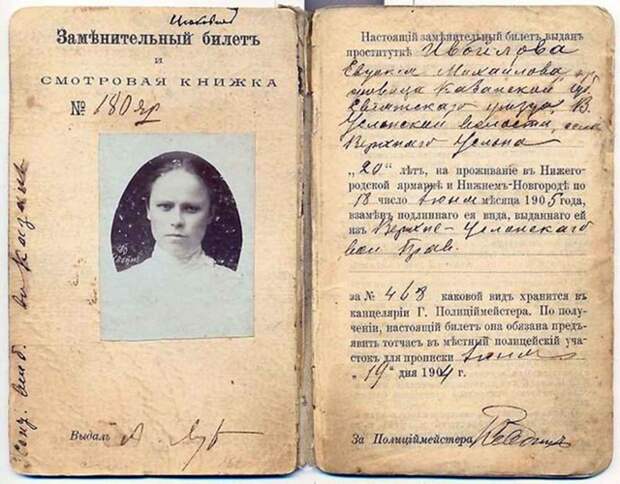 Замѣнительный билетъ
и
СМОТРОВАЯ КНИЖКА
№ 180 яр
Выдалъ
Настоящій замѣнительный билетъ выданъ
проституткѣ
Михайлова
Казанской губ.
уезда, В.
Услонской волости, села
Верхняго Услона
„20" лѣтъ, на проживаніе въ Нижего-
родской ярмаркѣ и Нижнемъ-Новгородѣ по
18 число Іюня мѣсяца 1905 года,
взамѣнъ подлиннаго ея вида, выданнаго ей
изъ Верхне-Услонскаго
вол Прав.
за № 468 каковой видъ хранится въ
канцеляріи Г. Полиціймейстера. По полу-
ченіи, настоящій билетъ она обязана предъ-
явить тотчасъ въ мѣстный полицейскій уча-
стокъ для прописки Іюня
„19" дня 1904 г.
За Полиціймейстера